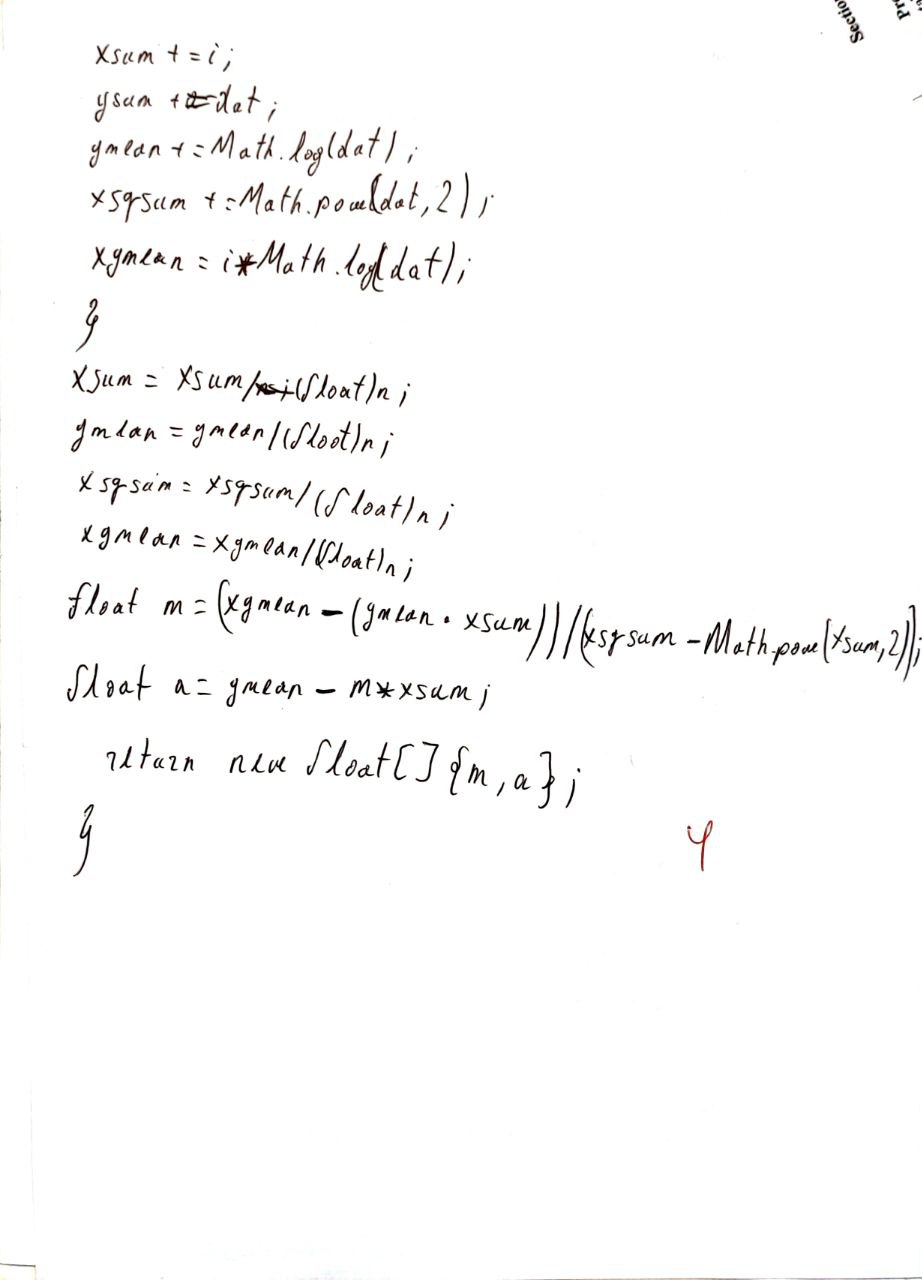 Sectio
Pr
xsum += i;
ysum += dat;
ymean += Math.log(dat);
xsqsum += Math.pow(dat, 2);
xymean = i * Math.log(dat);
}
xsum = xsum/(float)n;
ymean = ymean/(float)n;
xsqsum = xsqsum/(float)n;
xymean = xymean/(float)n;
float m = (xymean - (ymean * xsum))/(xsqsum - Math.pow(xsum, 2));
float a = ymean - m*xsum;
return new float[] {m, a};
}
4